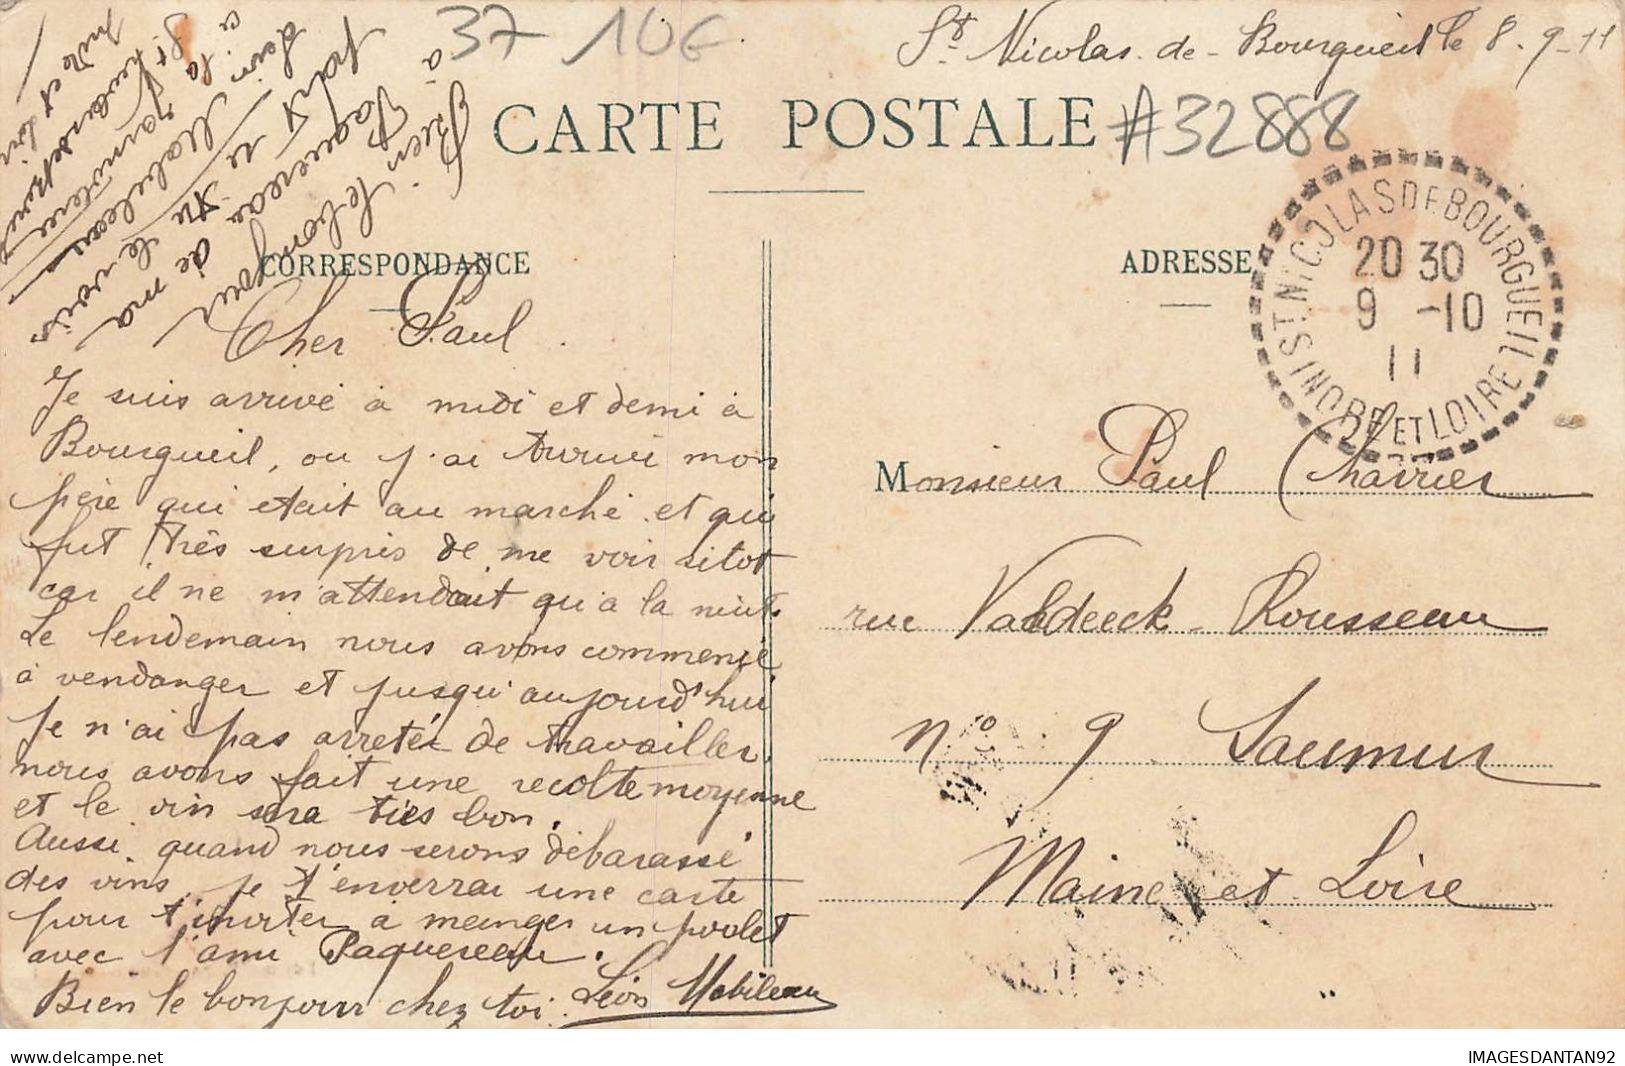 37 10E
St Nicolas. de - Bourgueil le 8. 9 - 11
CARTE POSTALE #32888
ST. NICOLAS DE BOURGUEIL
20 30
9 -10
11
INDRE ET LOIRE
CORRESPONDANCE
ADRESSE
Bien le bonjour
à Paquereau de ma
Cher Paul.
Je suis arrivé à midi et demi à
Bourgueil, ou j'ai trouvé mon
père qui etait au marché. et qui
fut très surpris de me voir sitot
car il ne m'attendait qu'a la nuit.
Le lendemain nous avons commencé
à vendanger et jusqu'aujourd'hui
je n'ai pas arreter de travailler.
nous avons fait une recolte moyenne
et le vin sera très bon.
Aussi. quand nous serons débarassé
des vins, je t'enverrai une carte
pour t'inviter a manger un poulet
avec l'ami Paquereau.
Bien le bonjour chez toi. Léon Mabileau
Monsieur Paul Charrier
rue Valdeeck - Rousseau
no 9 Saumur
Maine et Loire
IMAGESDANTAN92
delcampe.net